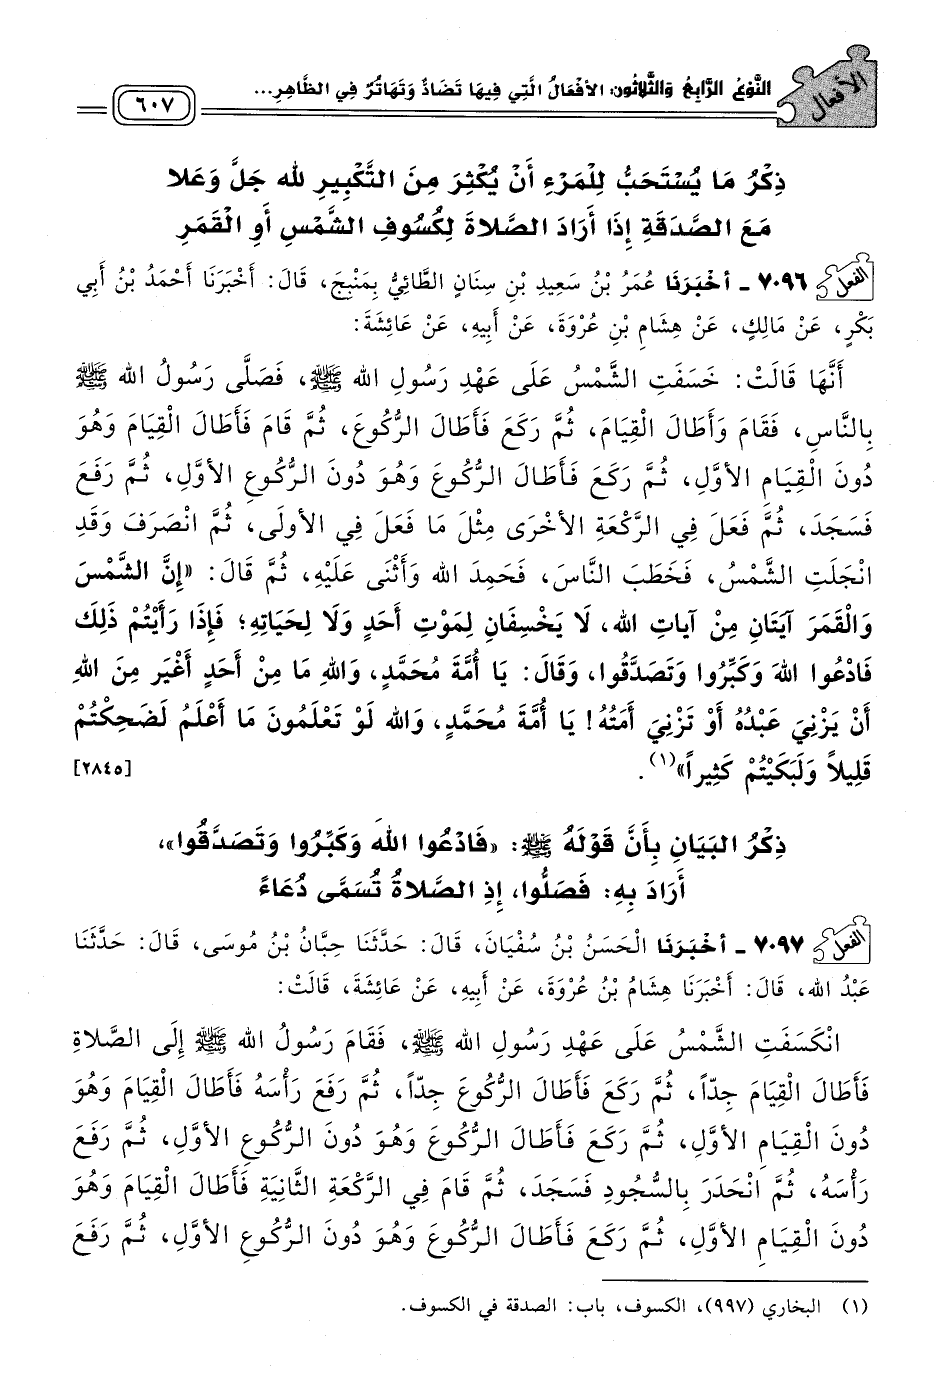 الأفعال
النَّوْعُ الرَّابِعُ وَالثَّلاثُون: الأَفْعَالُ الَّتِي فِيهَا تَضَادٌّ وَتَهَاتُرٌ فِي الظَّاهِرِ...
٦٠٧
ذِكْرُ مَا يُسْتَحَبُّ لِلْمَرْءِ أَنْ يُكْثِرَ مِنَ التَّكْبِيرِ لله جَلَّ وَعَلا
مَعَ الصَّدَقَةِ إِذَا أَرَادَ الصَّلاةَ لِكُسُوفِ الشَّمْسِ أَوِ الْقَمَرِ
الفعل ٧٠٩٦ ـ أَخْبَرَنَا عُمَرُ بْنُ سَعِيدِ بْنِ سِنَانٍ الطَّائِيُّ بِمَنْبِجَ، قَالَ: أَخْبَرَنَا أَحْمَدُ بْنُ أَبِي
بَكْرٍ، عَنْ مَالِكٍ، عَنْ هِشَامِ بْنِ عُرْوَةَ، عَنْ أَبِيهِ، عَنْ عَائِشَةَ:
أَنَّهَا قَالَتْ: خَسَفَتِ الشَّمْسُ عَلَى عَهْدِ رَسُولِ الله ﷺ، فَصَلَّى رَسُولُ الله ﷺ
بِالنَّاسِ، فَقَامَ وَأَطَالَ الْقِيَامَ، ثُمَّ رَكَعَ فَأَطَالَ الرُّكُوعَ، ثُمَّ قَامَ فَأَطَالَ الْقِيَامَ وَهُوَ
دُونَ الْقِيَامِ الأَوَّلِ، ثُمَّ رَكَعَ فَأَطَالَ الرُّكُوعَ وَهُوَ دُونَ الرُّكُوعِ الأَوَّلِ، ثُمَّ رَفَعَ
فَسَجَدَ، ثُمَّ فَعَلَ فِي الرَّكْعَةِ الأُخْرَى مِثْلَ مَا فَعَلَ فِي الأُولَى، ثُمَّ انْصَرَفَ وَقَدِ
انْجَلَتِ الشَّمْسُ، فَخَطَبَ النَّاسَ، فَحَمِدَ الله وَأَثْنَى عَلَيْهِ، ثُمَّ قَالَ: «إِنَّ الشَّمْسَ
وَالْقَمَرَ آيَتَانِ مِنْ آيَاتِ الله، لَا يَخْسِفَانِ لِمَوْتِ أَحَدٍ وَلَا لِحَيَاتِهِ؛ فَإِذَا رَأَيْتُمْ ذَلِكَ
فَادْعُوا اللهَ وَكَبِّرُوا وَتَصَدَّقُوا، وَقَالَ: يَا أُمَّةَ مُحَمَّدٍ، وَاللهِ مَا مِنْ أَحَدٍ أَغْيَر مِنَ اللهِ
أَنْ يَزْنِيَ عَبْدُهُ أَوْ تَزْنِيَ أَمَتُهُ! يَا أُمَّةَ مُحَمَّدٍ، وَالله لَوْ تَعْلَمُونَ مَا أَعْلَمُ لَضَحِكْتُمْ
قَلِيلاً وَلَبَكَيْتُمْ كَثِيراً»(١). [٢٨٤٥]
ذِكْرُ البَيَانِ بِأَنَّ قَوْلَهُ ﷺ: «فَادْعُوا اللهَ وَكَبِّرُوا وَتَصَدَّقُوا»،
أَرَادَ بِهِ: فَصَلُّوا، إِذِ الصَّلاةُ تُسَمَّى دُعَاءً
الفعل ٧٠٩٧ ـ أَخْبَرَنَا الْحَسَنُ بْنُ سُفْيَانَ، قَالَ: حَدَّثَنَا حِبَّانُ بْنُ مُوسَى، قَالَ: حَدَّثَنَا
عَبْدُ الله، قَالَ: أَخْبَرَنَا هِشَامُ بْنُ عُرْوَةَ، عَنْ أَبِيهِ، عَنْ عَائِشَةَ، قَالَتْ:
انْكَسَفَتِ الشَّمْسُ عَلَى عَهْدِ رَسُولِ الله ﷺ، فَقَامَ رَسُولُ الله ﷺ إِلَى الصَّلاةِ
فَأَطَالَ الْقِيَامَ جِدّاً، ثُمَّ رَكَعَ فَأَطَالَ الرُّكُوعَ جِدّاً، ثُمَّ رَفَعَ رَأْسَهُ فَأَطَالَ الْقِيَامَ وَهُوَ
دُونَ الْقِيَامِ الأَوَّلِ، ثُمَّ رَكَعَ فَأَطَالَ الرُّكُوعَ وَهُوَ دُونَ الرُّكُوعِ الأَوَّلِ، ثُمَّ رَفَعَ
رَأْسَهُ، ثُمَّ انْحَدَرَ بِالسُّجُودِ فَسَجَدَ، ثُمَّ قَامَ فِي الرَّكْعَةِ الثَّانِيَةِ فَأَطَالَ الْقِيَامَ وَهُوَ
دُونَ الْقِيَامِ الأَوَّلِ، ثُمَّ رَكَعَ فَأَطَالَ الرُّكُوعَ وَهُوَ دُونَ الرُّكُوعِ الأَوَّلِ، ثُمَّ رَفَعَ
(١) البخاري (٩٩٧)، الكسوف، باب: الصدقة في الكسوف.